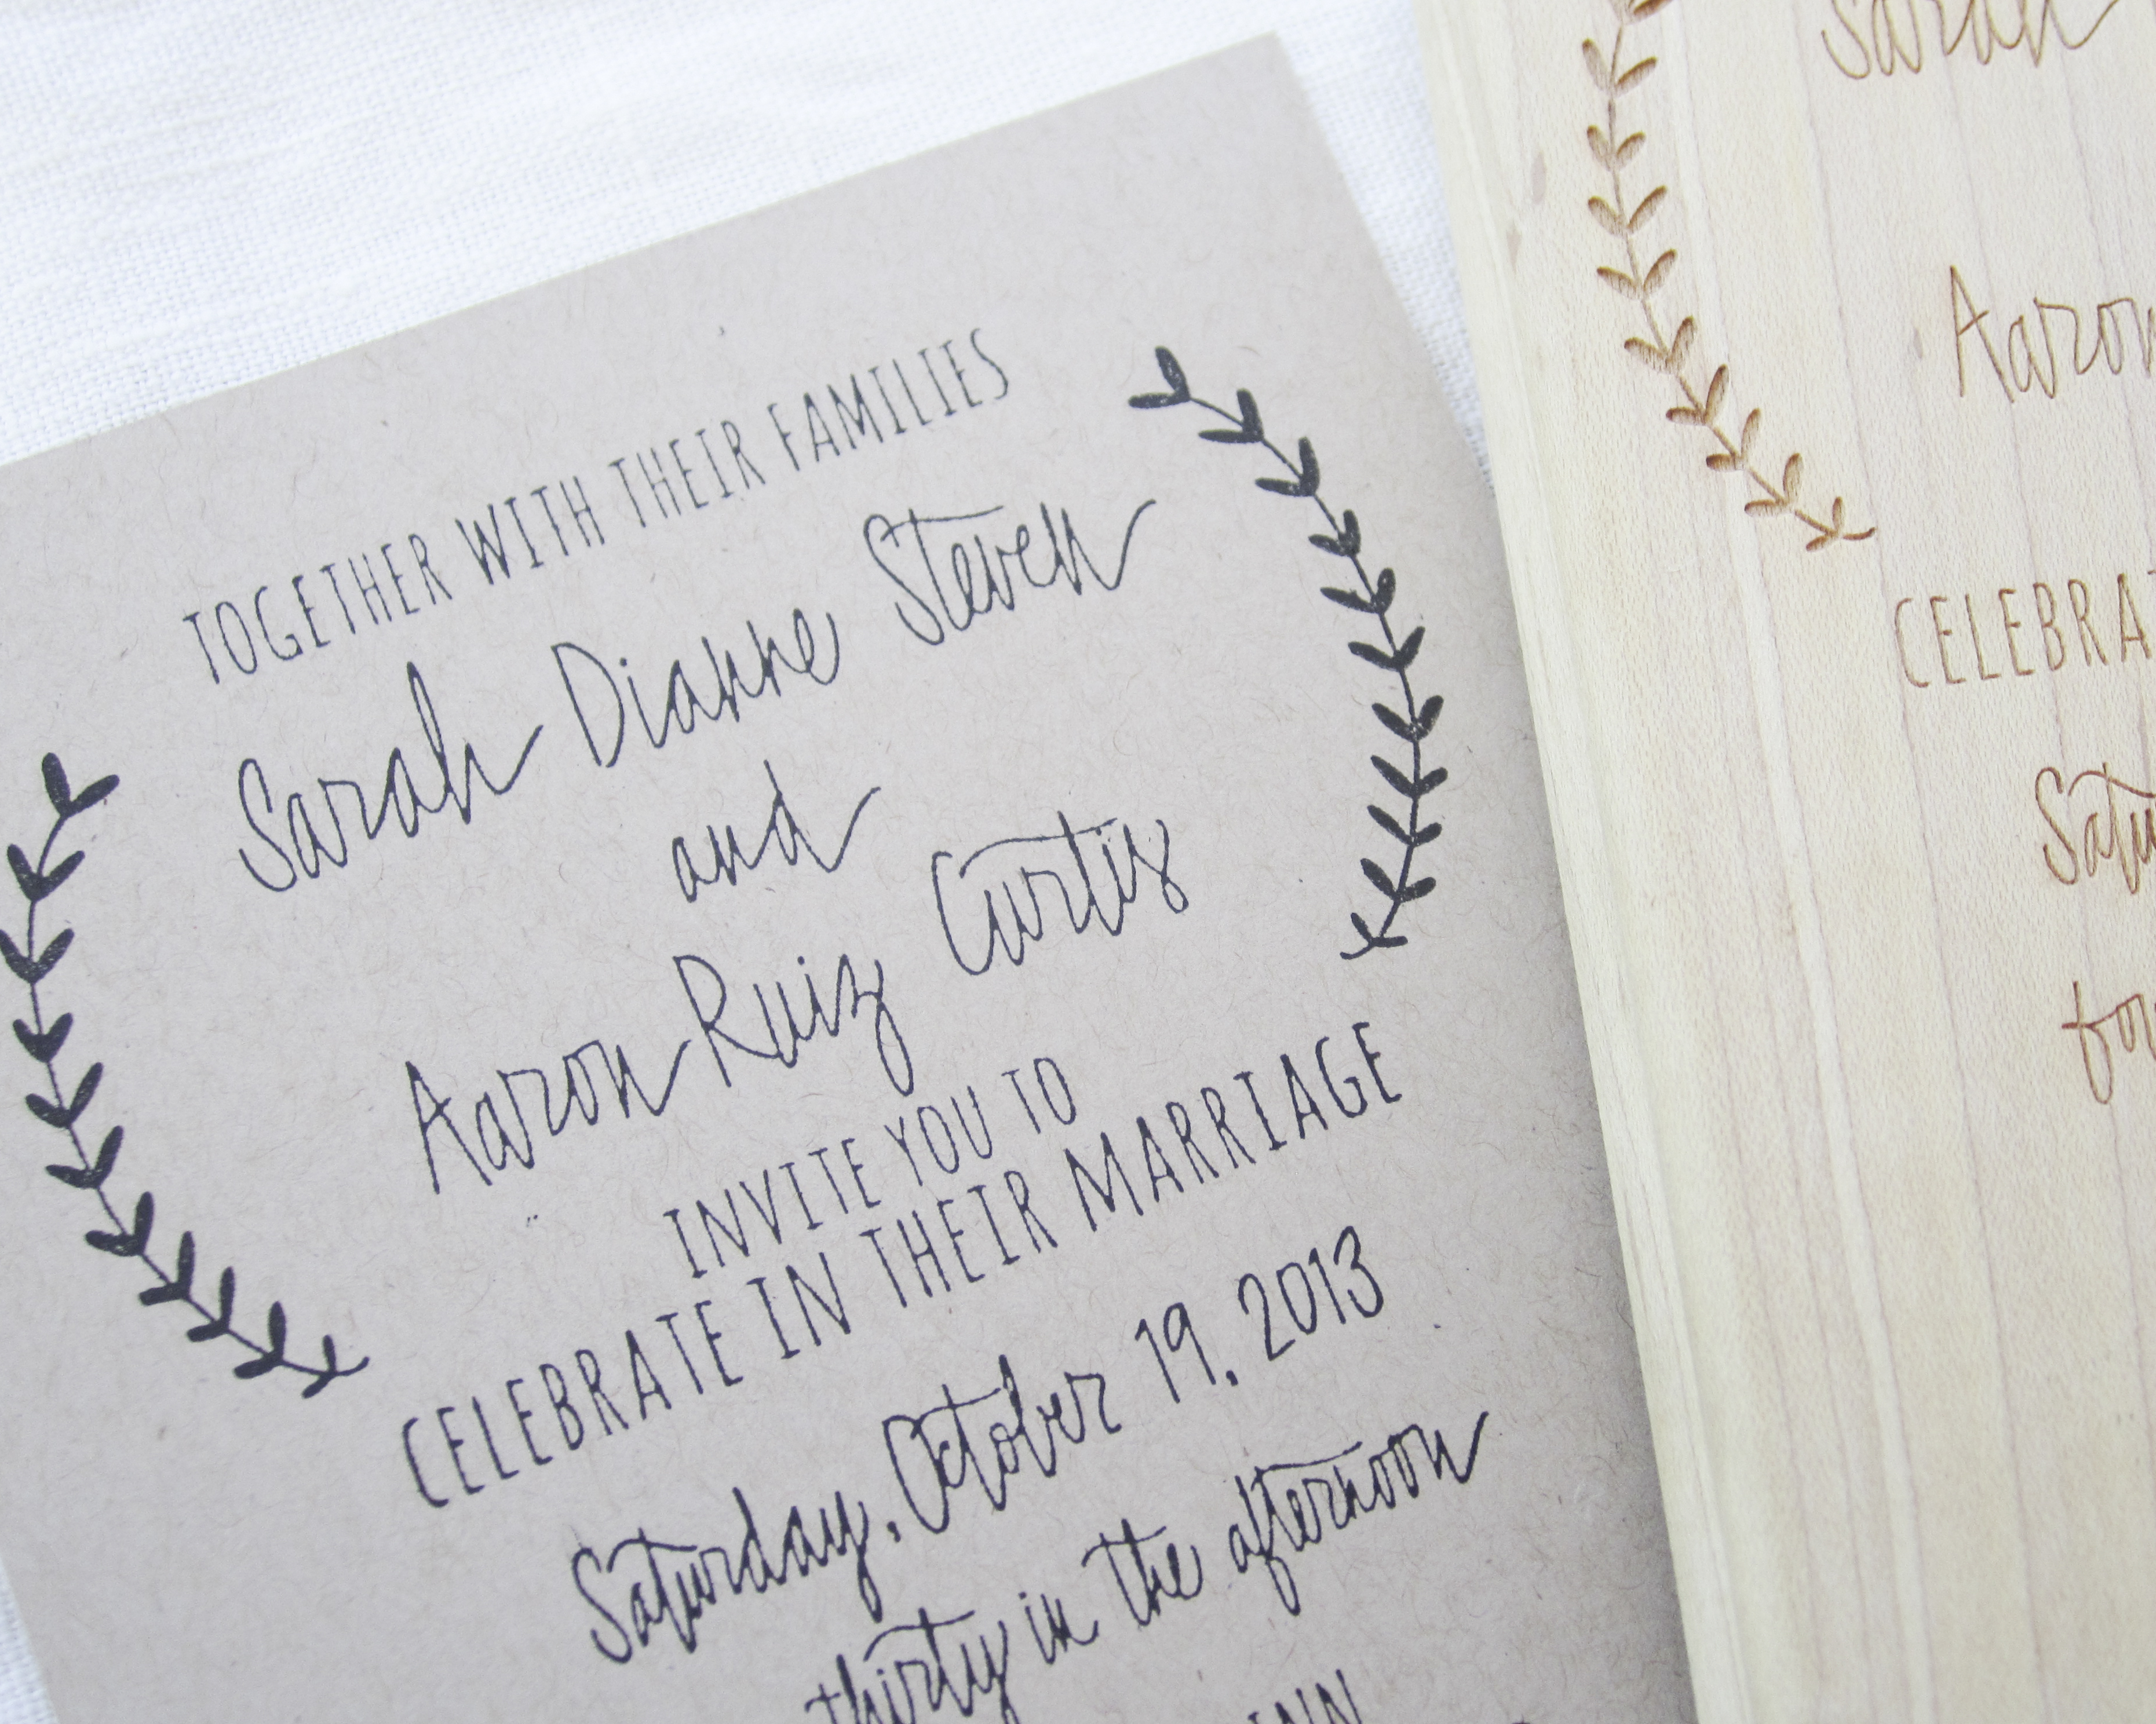 TOGETHER WITH THEIR FAMILIES
Sarah Dianne Steven
and
Aaron Ruiz Curtis
INVITE YOU TO
CELEBRATE IN THEIR MARRIAGE
Saturday, October 19, 2013
thirty in the afternoon
Sarah
Aaron
CELEBRAT
Satu